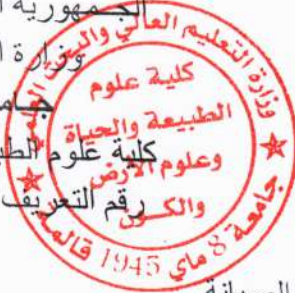 الجمهورية ا
وزارة ا
جامع
كلية علوم الطب
رقم التعريف
وزارة التعليم العالي والبحث العلمي
كلية علوم
الطبيعة والحياة
وعلوم الأرض
والكون
جامعة 8 ماي 1945 قالمة